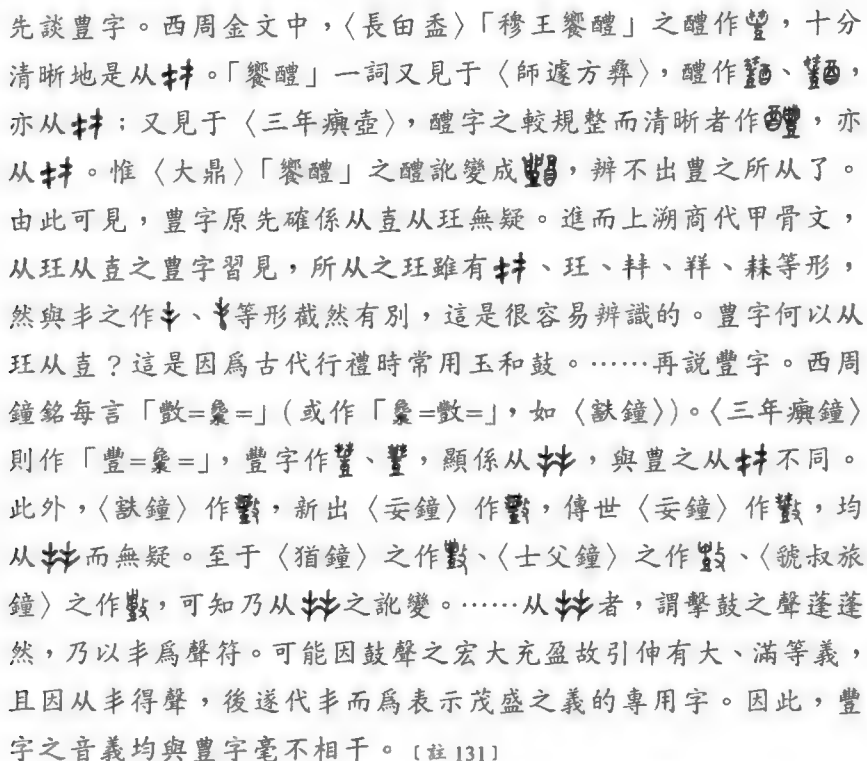 先談豊字。西周金文中，〈長甶盉〉「穆王饗醴」之醴作，十分
清晰地是从。「饗醴」一詞又見于〈師遽方彝〉，醴作、，
亦从；又見于〈三年𤼈壺〉，醴字之較規整而清晰者作，亦
从。惟〈大鼎〉「饗醴」之醴訛變成，辨不出豊之所从了。
由此可見，豊字原先確係从壴从玨無疑。進而上溯商代甲骨文，
从玨从壴之豊字習見，所从之玨雖有、玨、等形，
然與丯之作、等形截然有別，這是很容易辨識的。豊字何以从
玨从壴？這是因爲古代行禮時常用玉和鼓。……再說豐字。西周
鐘銘每言「數=㲋=」（或作「㲋=數=」，如〈㝬鐘〉）。〈三年𤼈鐘〉
則作「豐=㲋=」，豐字作、，顯係从，與豊之从不同。
此外，〈㝬鐘〉作，新出〈妄鐘〉作，傳世〈妄鐘〉作，均
从而無疑。至于〈猶鐘〉之作、〈士父鐘〉之作、〈虢叔旅
鐘〉之作，可知乃从之訛變。……从者，謂擊鼓之聲蓬蓬
然，乃以丯爲聲符。可能因鼓聲之宏大充盈故引伸有大、滿等義，
且因从丯得聲，後遂代丯而爲表示茂盛之義的專用字。因此，豐
字之音義均與豊字毫不相干。〔註131〕